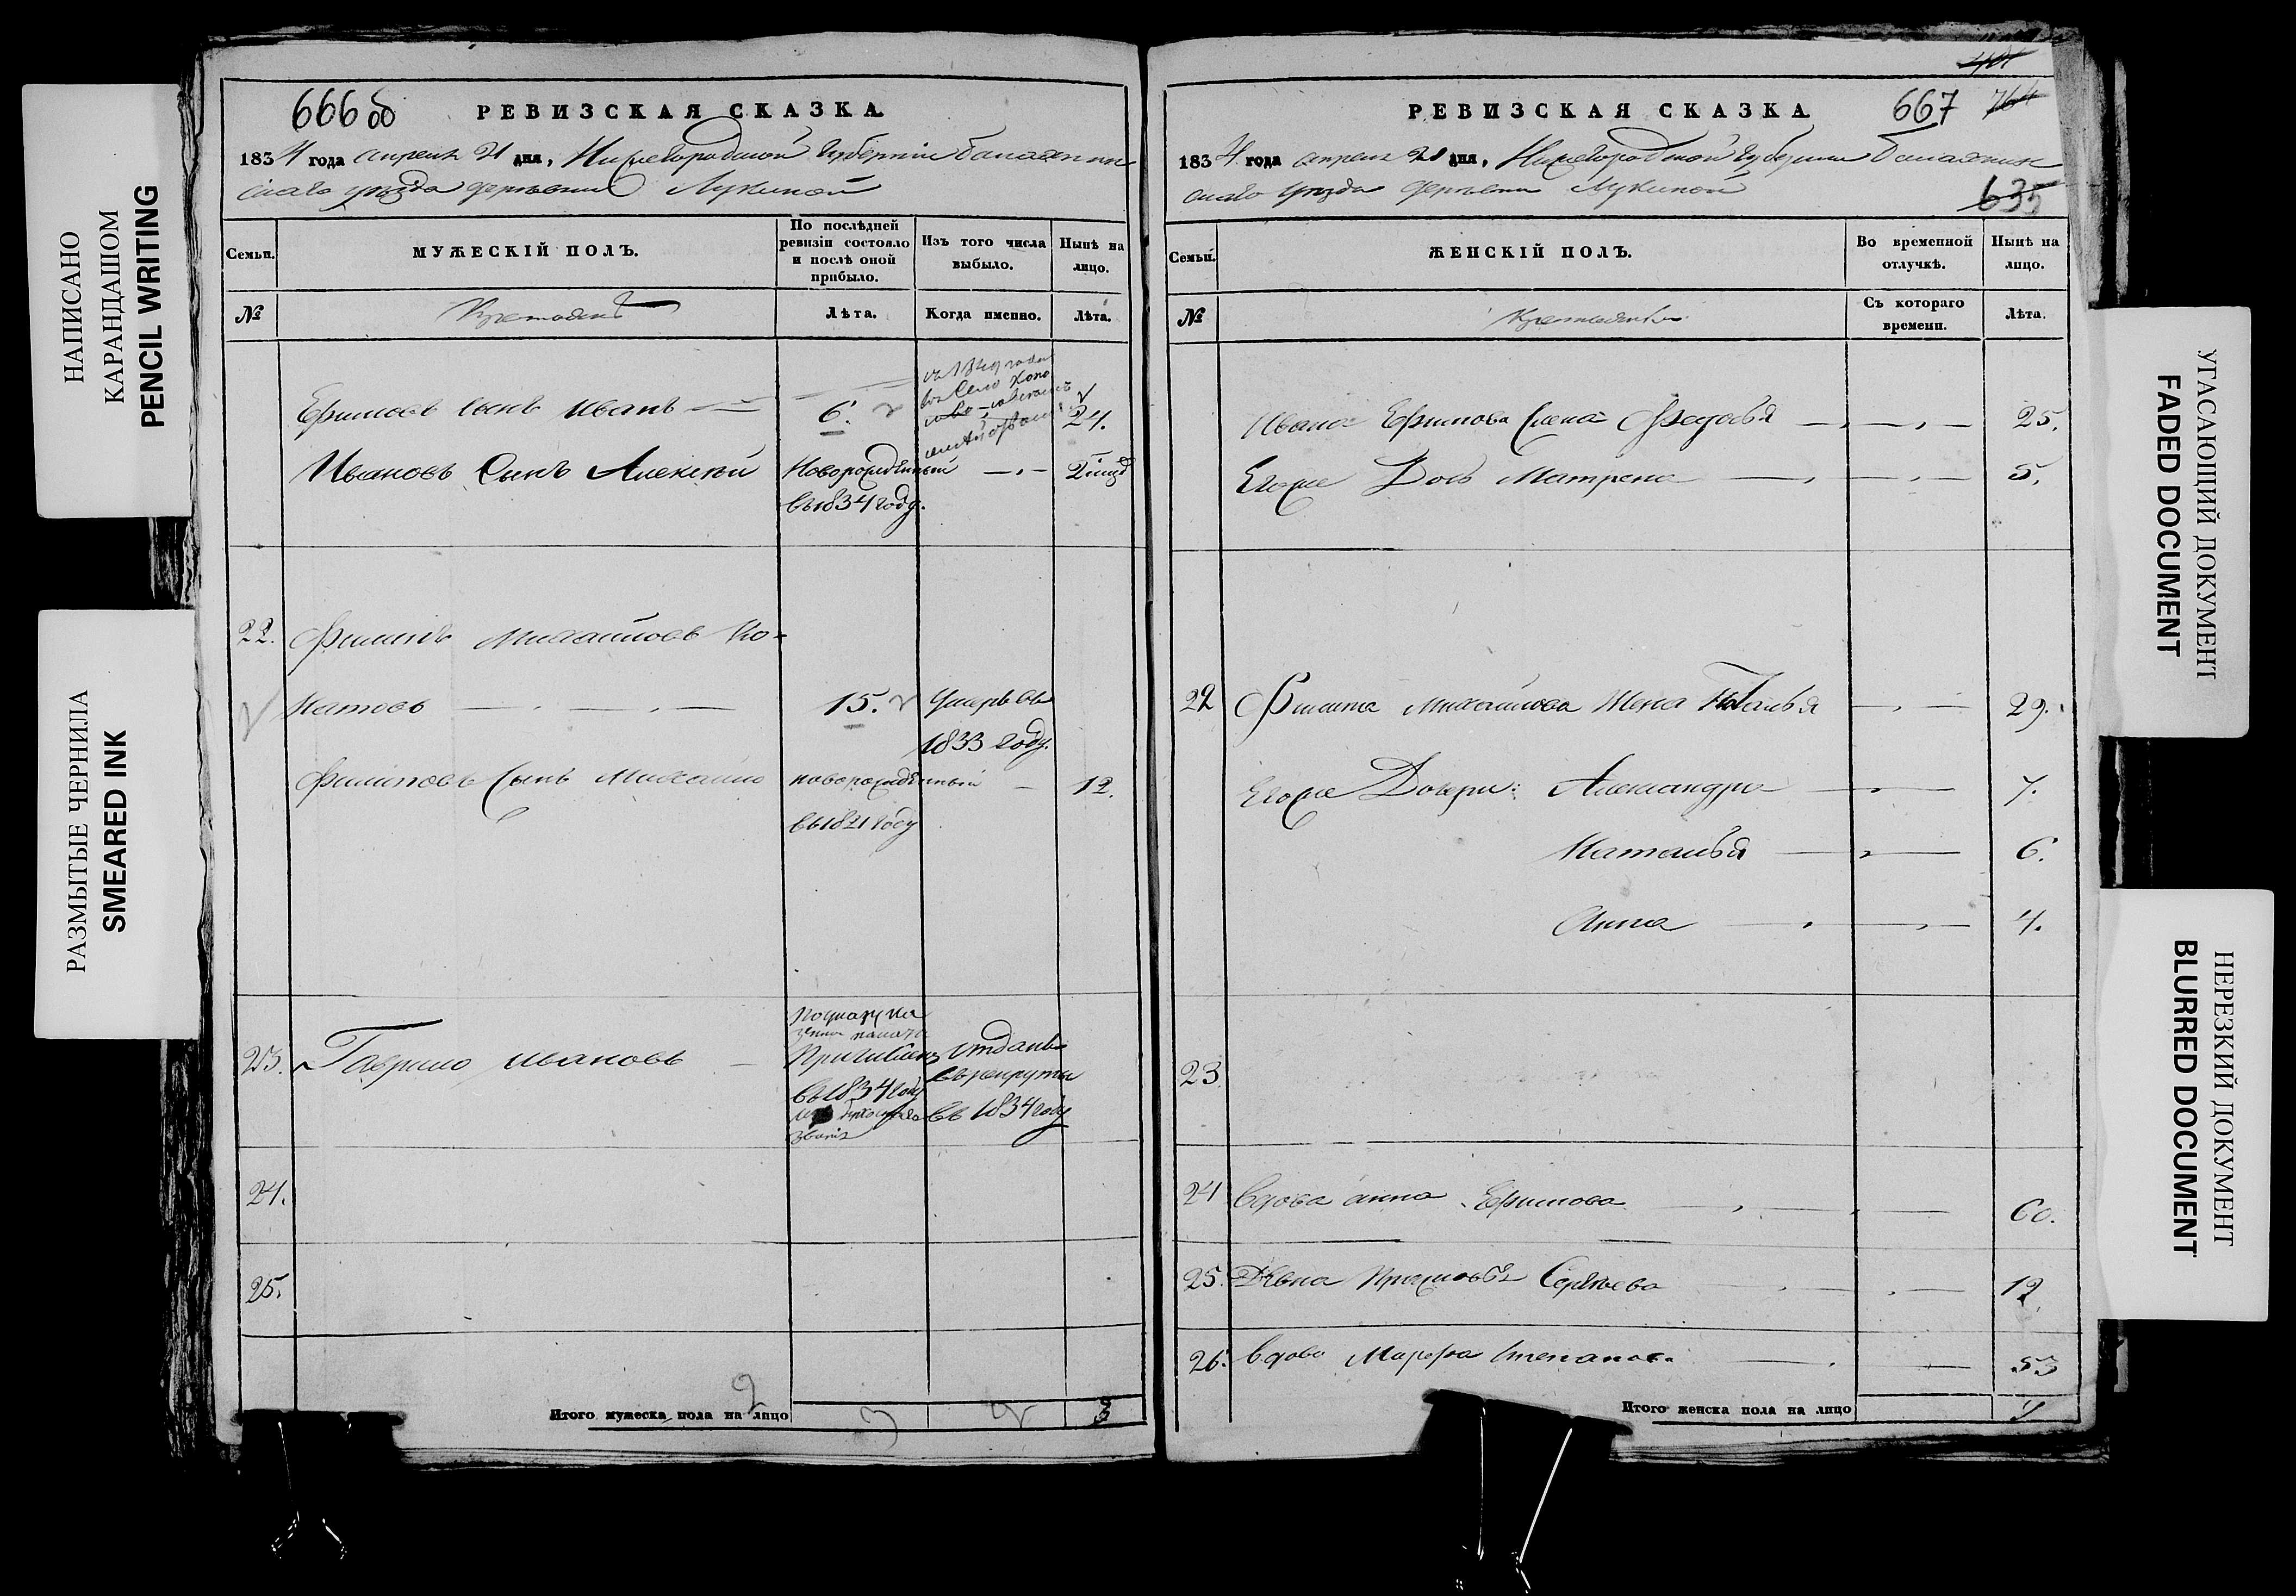 НАПИСАНО
КАРАНДАШОМ
PENCIL WRITING
РАЗМЫТЫЕ ЧЕРНИЛА
SMEARED INK
666 об
РЕВИЗСКАЯ СКАЗКА
1834 года апреля 21 дня, Нижегородской губернии Балахнин
скаго уезда деревни Лукиной
Семьи.
МУЖЕСКІЙ ПОЛЪ.
По послѣдней
ревизіи состояло
и послѣ оной
прибыло.
Изъ того числа
выбыло.
Нынѣ на
лицо.
№
Лѣта.
Когда именно.
Лѣта.
Ефимовъ сынъ Иванъ
6.
24.
Ивановъ Сынъ Алексѣй
Новорожденный
въ 1834 году.
22. Филипъ Михайловъ
15.
Умеръ въ
1833 году.
Филиповъ Сынъ Михайло
новорожденный
12.
въ 1821 году
23. Гаврило Ивановъ
въ 1834 году
Отданъ
въ рекруты
въ 1834 году
24.
25.
Итого мужеска пола на лицо
2
3
2
667
764
РЕВИЗСКАЯ СКАЗКА
1834 года апреля дня, Нижегородской губернии Балахнин
скаго уезда деревни Лукиной
635
Семьи.
ЖЕНСКІЙ ПОЛЪ.
Во временной
отлучкѣ.
Нынѣ на
лицо.
№
Съ котораго
времени.
Лѣта.
Ивана Ефимова Жена Федосья
25.
Егоже Дочь Матрена
5.
22 Филипа Михайлова Жена
29.
Егоже Дочери: Александра
7.
Наталья
6.
Анна
4.
23.
24 Вдова Анна Ефимова
60.
25. Сергѣева
12.
26. Вдова Марфа Степанова
53
Итого женска пола на лицо
9
УГАСАЮЩИЙ ДОКУМЕНТ
FADED DOCUMENT
НЕРЕЗКИЙ ДОКУМЕНТ
BLURRED DOCUMENT